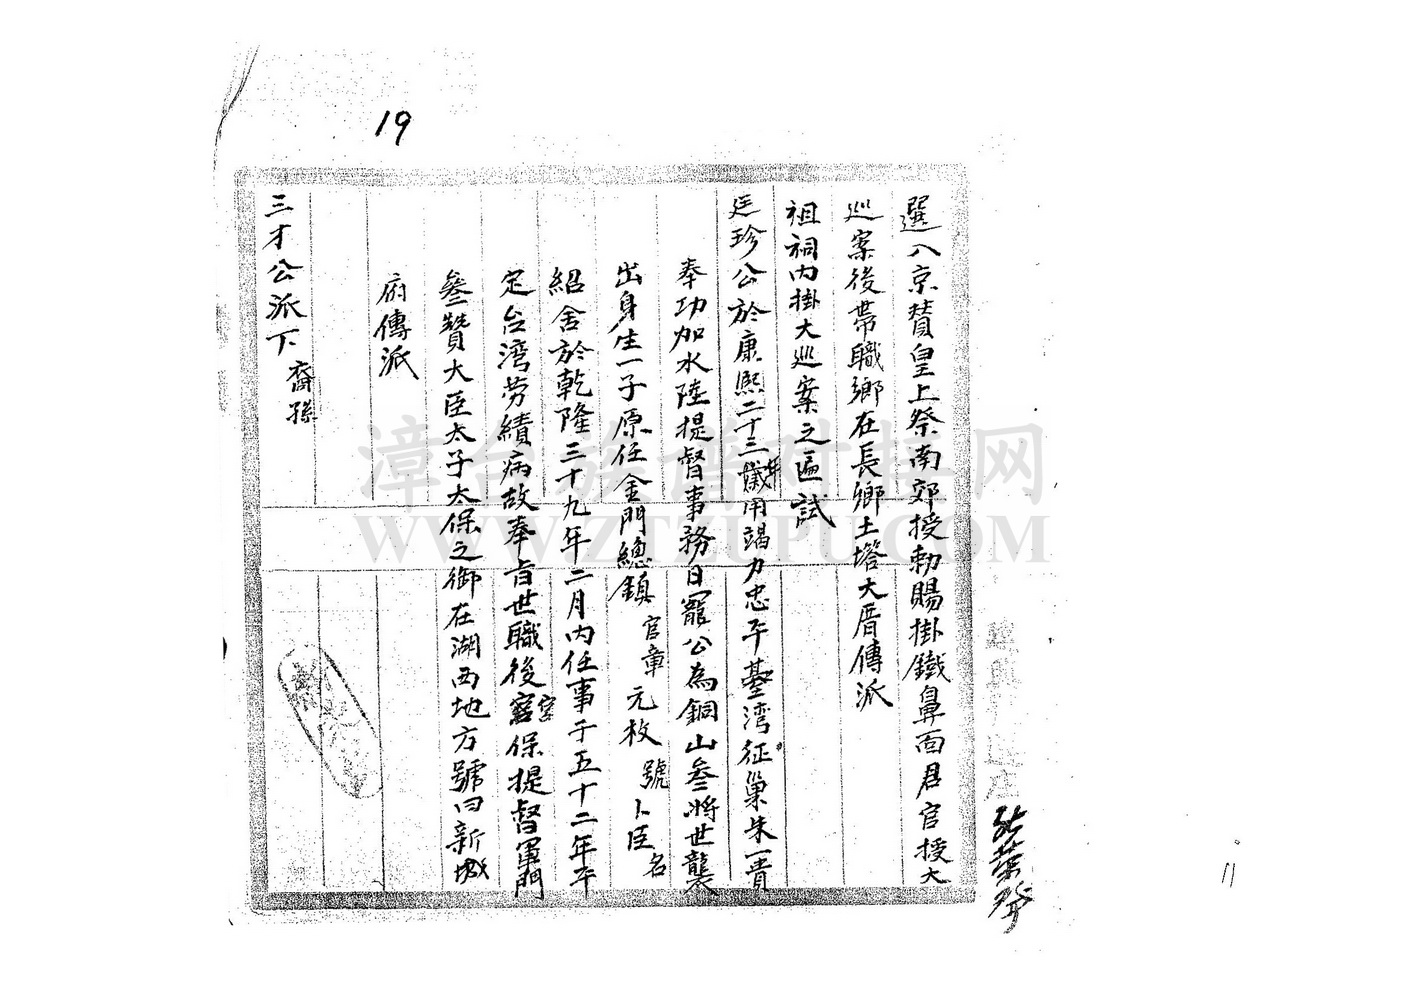 19
選入京賛皇上祭南郊授勅賜掛鐵鼻面君官授大
巡案後帶職鄉在長鄉土塔大厝傳派
祖祠內掛大巡案之匾試
廷珍公於康熙二十三年歲用竭力忠平臺湾征巢朱一貴
奉功加水陸提督事務日寵公為銅山叅將世襲
出身生一子原任金門總鎮官章元枚號卜臣名
紹舍於乾隆三十九年二月內任事于五十二年平
定台湾劳績病故奉旨世職後宮保提督軍門
叅贊大臣太子太保之御在湖西地方號曰新城
府傳派
三才公派下裔孫
漳台族谱对接网
WWW.ZTZUPU.COM
11